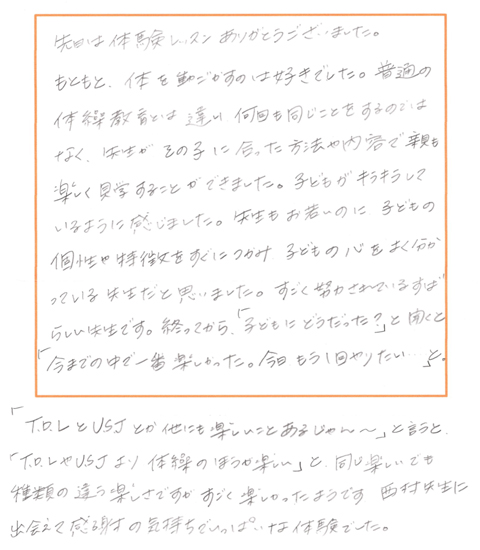 先日は体験レッスンありがとうございました。
もともと、体を動ごかすのは好きでした。普通の
体操教育とは違い、何回も同じことをするのでは
なく、先生がその子に合った方法や内容で親も
楽しく見学することができました。子どもがキラキラして
いるように感じました。先生もお若いのに子どもの
個性や特徴をすぐにつかみ、子どもの心をよく分か
っている先生だと思いました。すごく努力されているすば
らしい先生です。終ってから、「子どもにどうだった?」と聞くと
「今までの中で一番楽しかった。今日もう1回やりたい…」と。
「T.D.LとUSJとか他にも楽しいことあるじゃん〜」と言うと、
「T.D.LやUSJより体操のほうが楽しい」と、同じ楽しいでも
種類の違う楽しさですがすごく楽しかったようです 西村先生に
出会えて感謝の気持ちでいっぱいな体験でした。